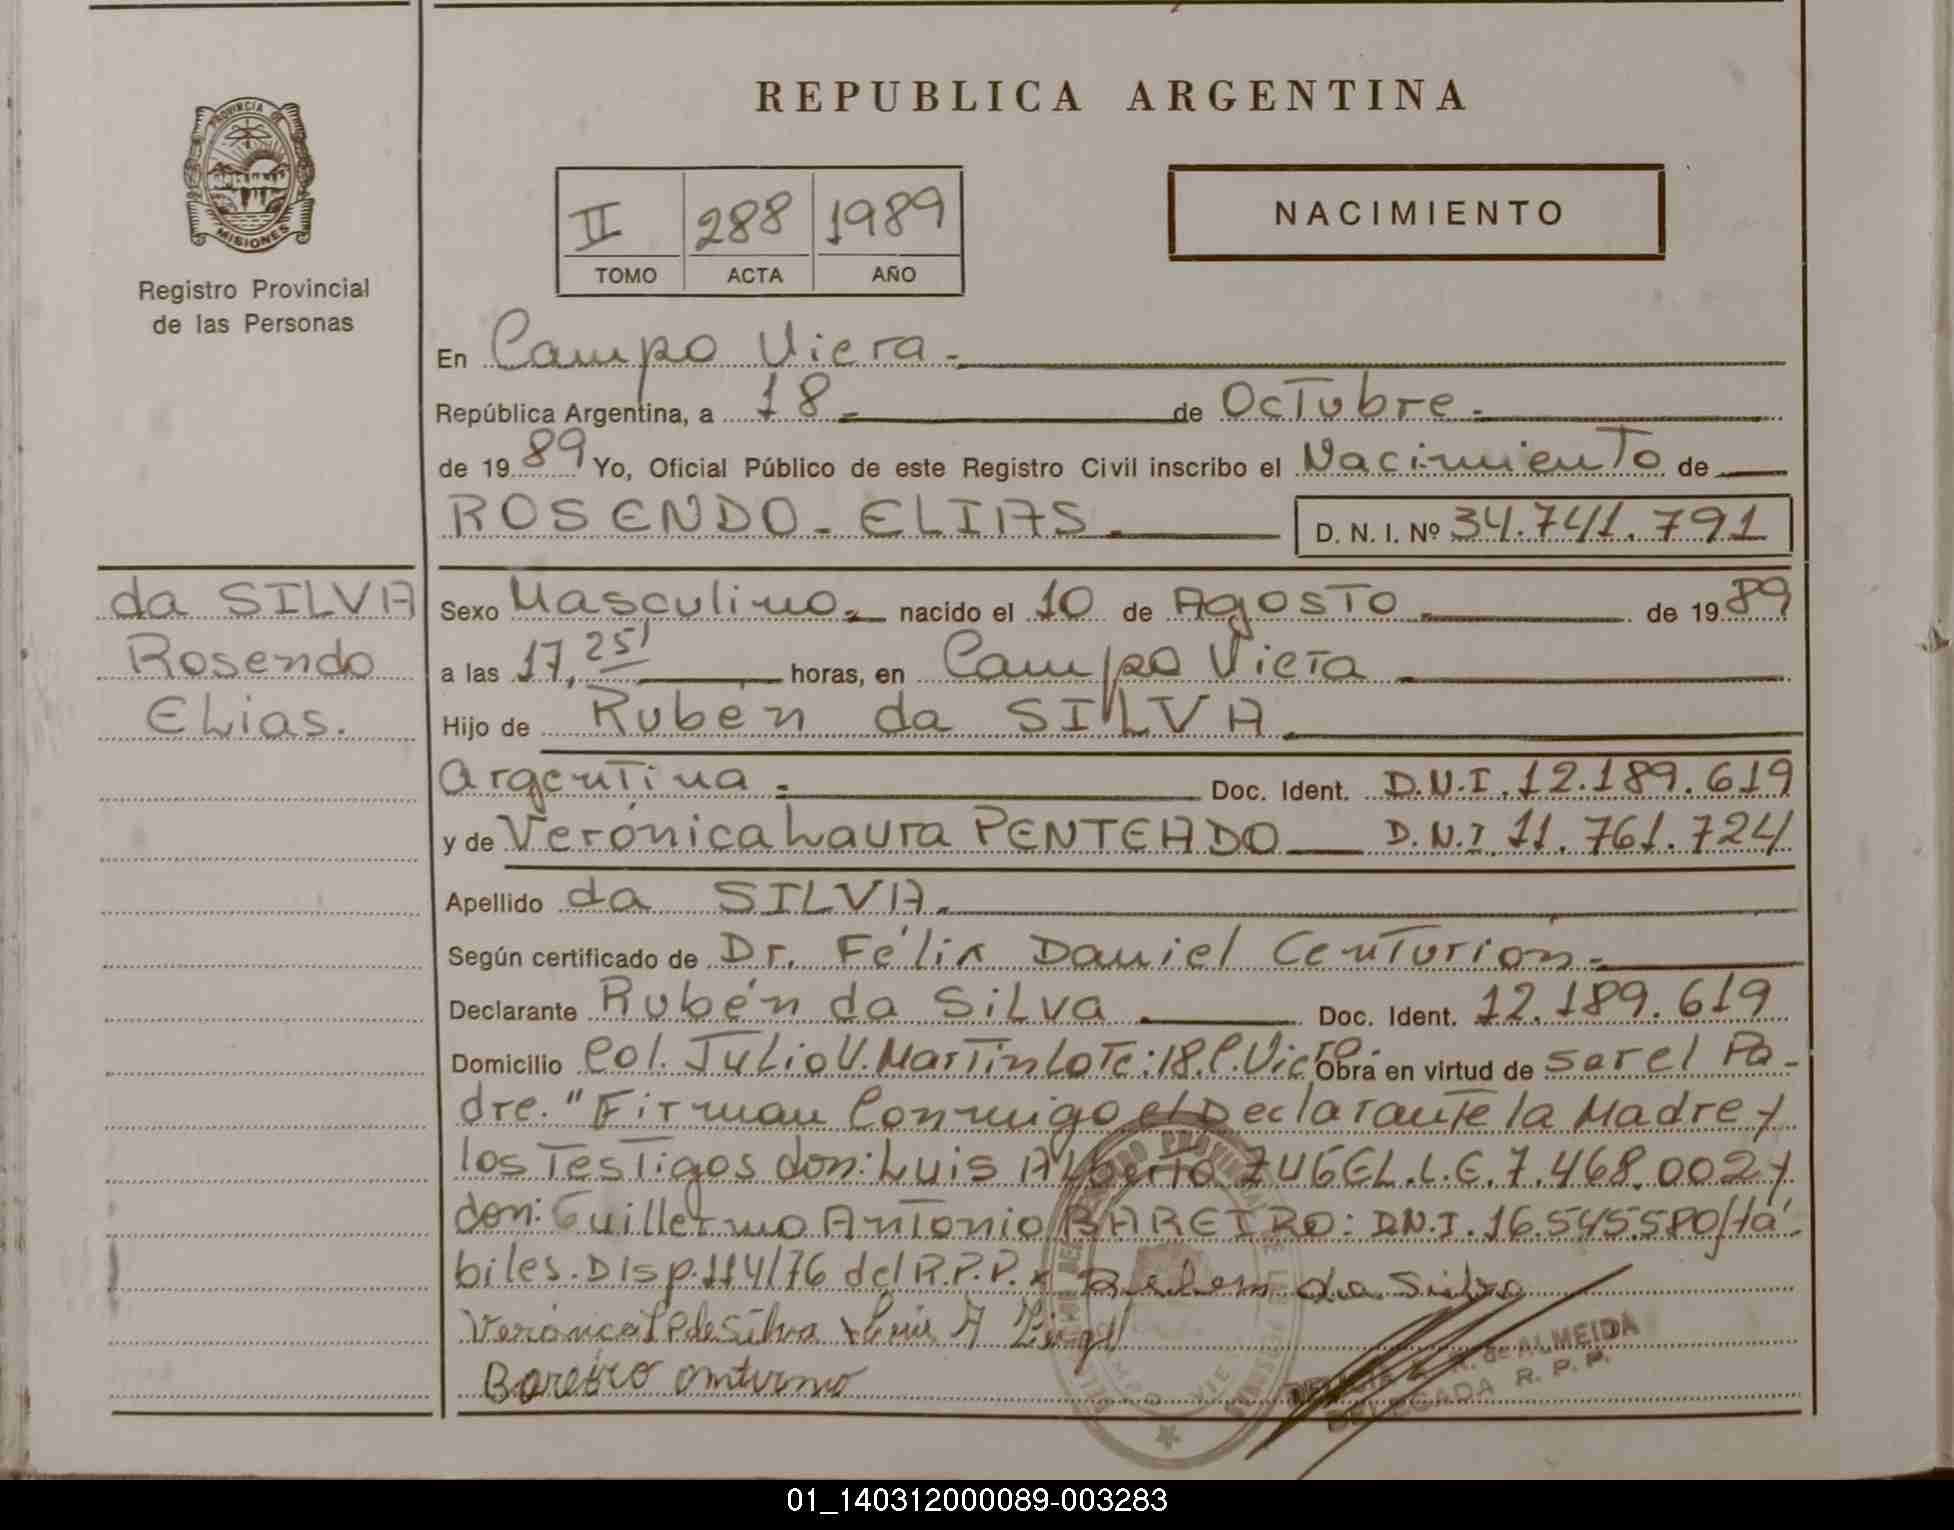 REPUBLICA ARGENTINA
PROVINCIA DE
MISIONES
Registro Provincial
de las Personas
II 288 1989
TOMO ACTA AÑO
NACIMIENTO
En Campo Viera.-
República Argentina, a 18.- de Octubre.-
de 1989 Yo, Oficial Público de este Registro Civil inscribo el Nacimiento de
ROSENDO - ELIAS.- D. N. I. Nº 34.741.791
da SILVA
Rosendo
Elias.
Sexo Masculino.- nacido el 10 de Agosto.- de 1989
a las 17,25' horas, en Campo Viera
Hijo de Rubén da SILVA
Argentina.- Doc. Ident. D.N.I. 12.189.619
y de Verónica Laura PENTEADO D.N.I. 11.761.724
Apellido da SILVA.-
Según certificado de Dr. Félix Daniel Centurión.-
Declarante Rubén da Silva Doc. Ident. 12.189.619
Domicilio Col. Julio U. Martin Lote:18.C.Viera. Obra en virtud de ser el Pa-
dre. "Firman Conmigo el Declarante la Madre y
los Testigos don: Luis Alberto ZUGEL.L.E.7.468.002 y
don: Guillermo Antonio BAREIRO: D.N.I. 16.545.580/Há-
biles. Disp.114/76 del R.P.P. x Ruben da Silva
Veronica L P de Silva x Luis A Zugel
Bareiro antonio
de ALMEIDA
DELEGADA R. P. P.
01_140312000089-003283